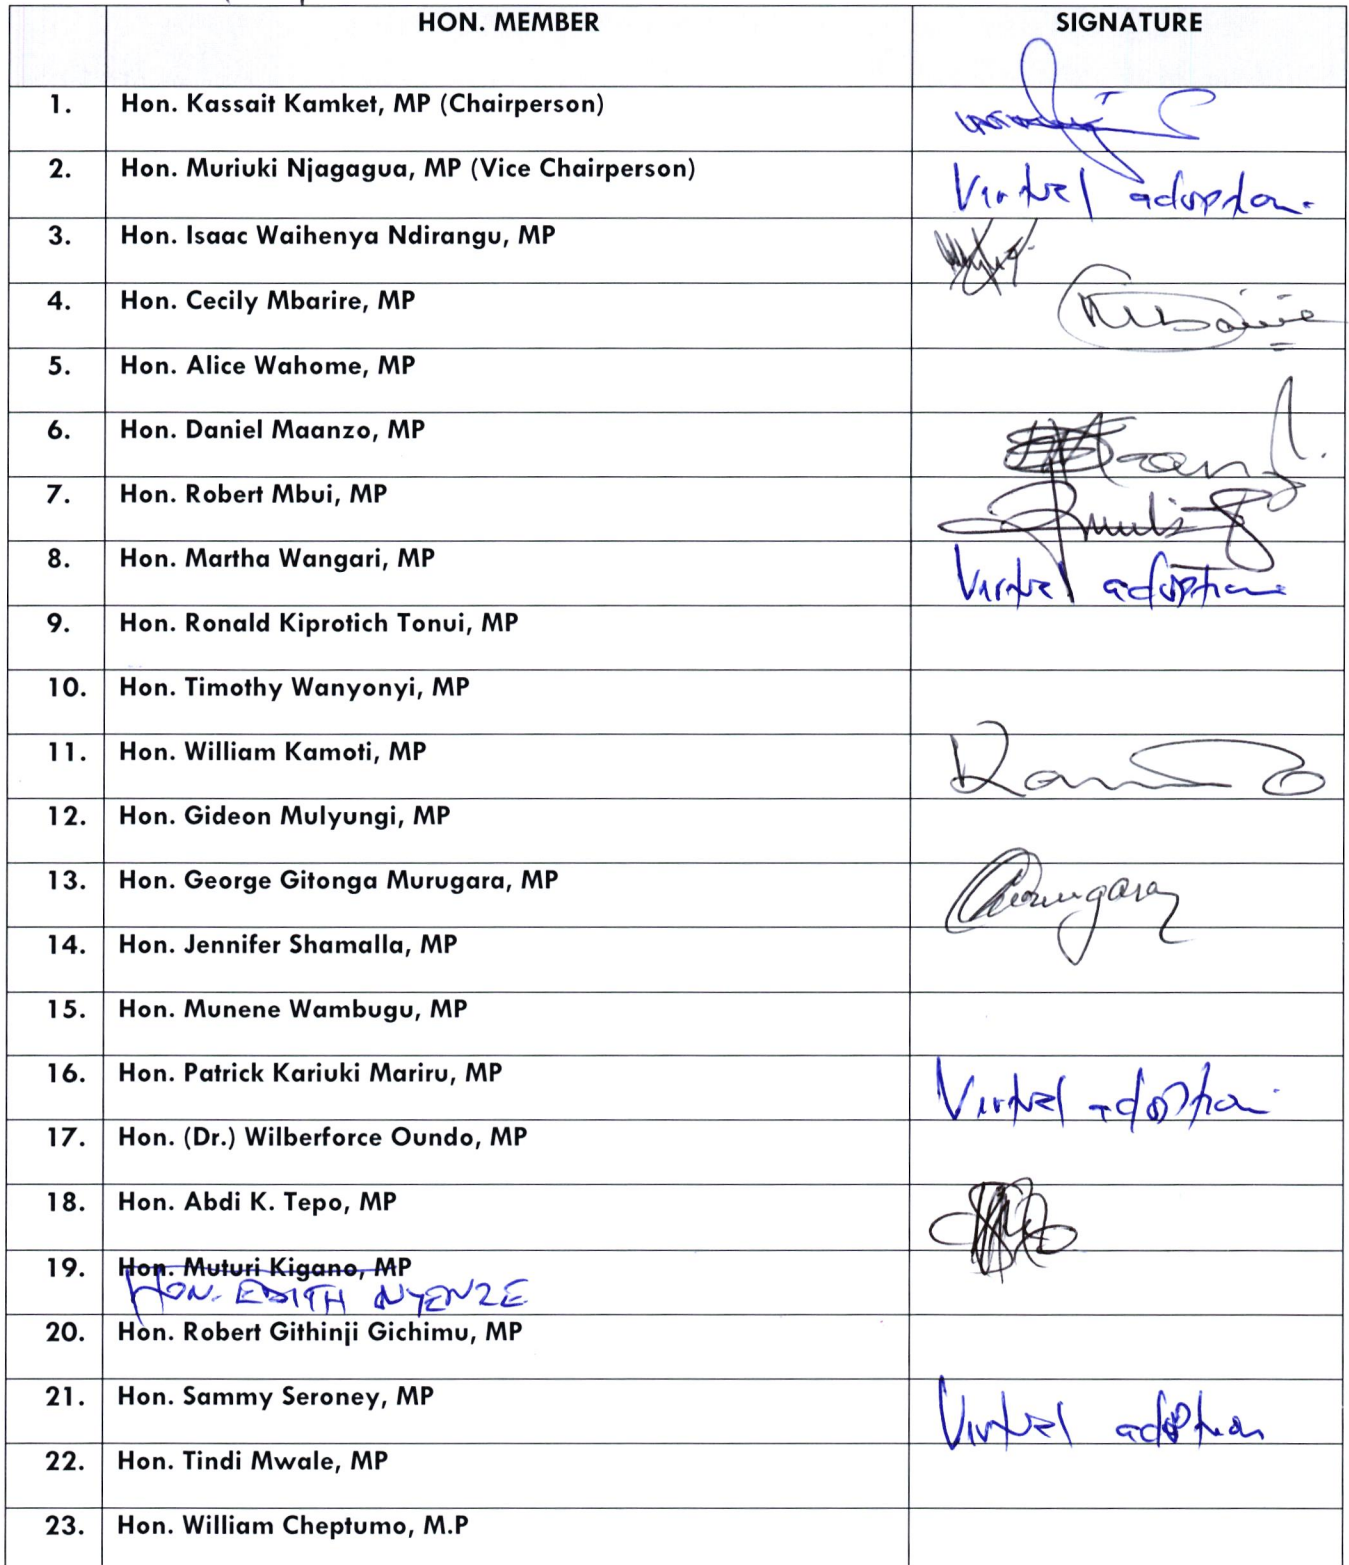 HON. MEMBER SIGNATURE
1. Hon. Kassait Kamket, MP (Chairperson)
2. Hon. Muriuki Njagagua, MP (Vice Chairperson) Virtual adoption.
3. Hon. Isaac Waihenya Ndirangu, MP
4. Hon. Cecily Mbarire, MP
5. Hon. Alice Wahome, MP
6. Hon. Daniel Maanzo, MP
7. Hon. Robert Mbui, MP
8. Hon. Martha Wangari, MP Virtual adoption
9. Hon. Ronald Kiprotich Tonui, MP
10. Hon. Timothy Wanyonyi, MP
11. Hon. William Kamoti, MP
12. Hon. Gideon Mulyungi, MP
13. Hon. George Gitonga Murugara, MP
14. Hon. Jennifer Shamalla, MP
15. Hon. Munene Wambugu, MP
16. Hon. Patrick Kariuki Mariru, MP Virtual adoption
17. Hon. (Dr.) Wilberforce Oundo, MP
18. Hon. Abdi K. Tepo, MP
19. Hon. Muturi Kigano, MP
HON. EDITH NYENZE
20. Hon. Robert Githinji Gichimu, MP
21. Hon. Sammy Seroney, MP Virtual adoption
22. Hon. Tindi Mwale, MP
23. Hon. William Cheptumo, M.P